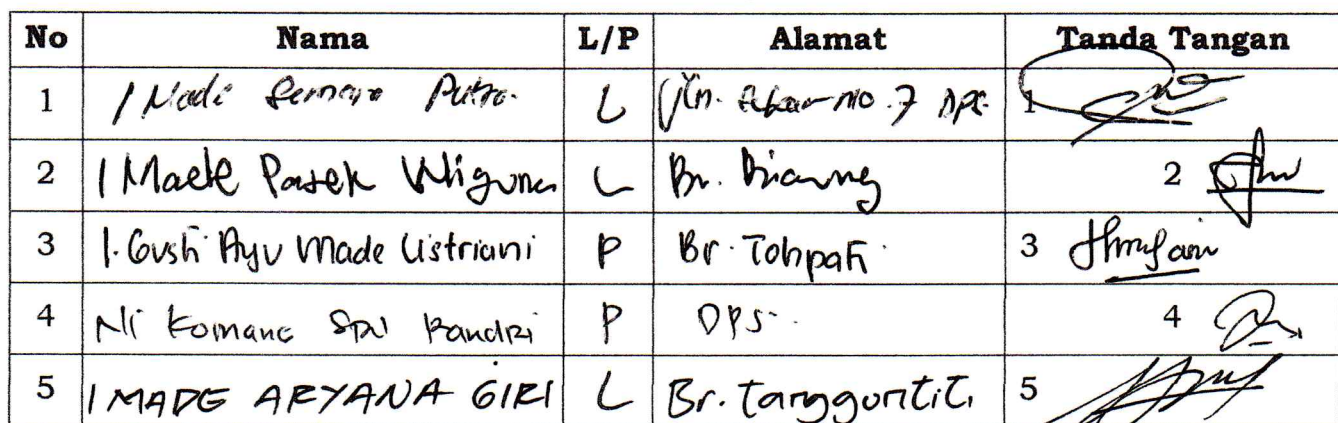 No Nama L/P Alamat Tanda Tangan
1 I Made Semara Putra. L Jln. no. 7 Dps. 1
2 I Made Pasek Wiguna L Br. Biaung 2
3 I. Gusti Ayu Made Listriani P Br. Tohpati 3
4 Ni Komang Sri Pandri P DPS. 4
5 I MADE ARYANA GIRI L Br. Tangguntiti 5